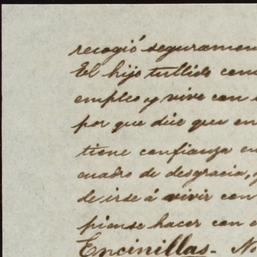 recogió seguramen
El hijo tullido con
empleo y vive con
por que dice que en
tiene confianza en
cuadro de desgracia,
de irse á vivir con
piense hacer con
Encinillas- N